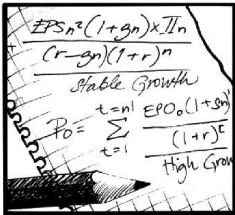 EPSn²(1+gn)×Πn
(r-gn)(1+r)ⁿ
Stable Growth
t=n1
P₀= Σ EPO₀(1+gn)ᵗ
t=1 (1+r)ᵗ
High Grow